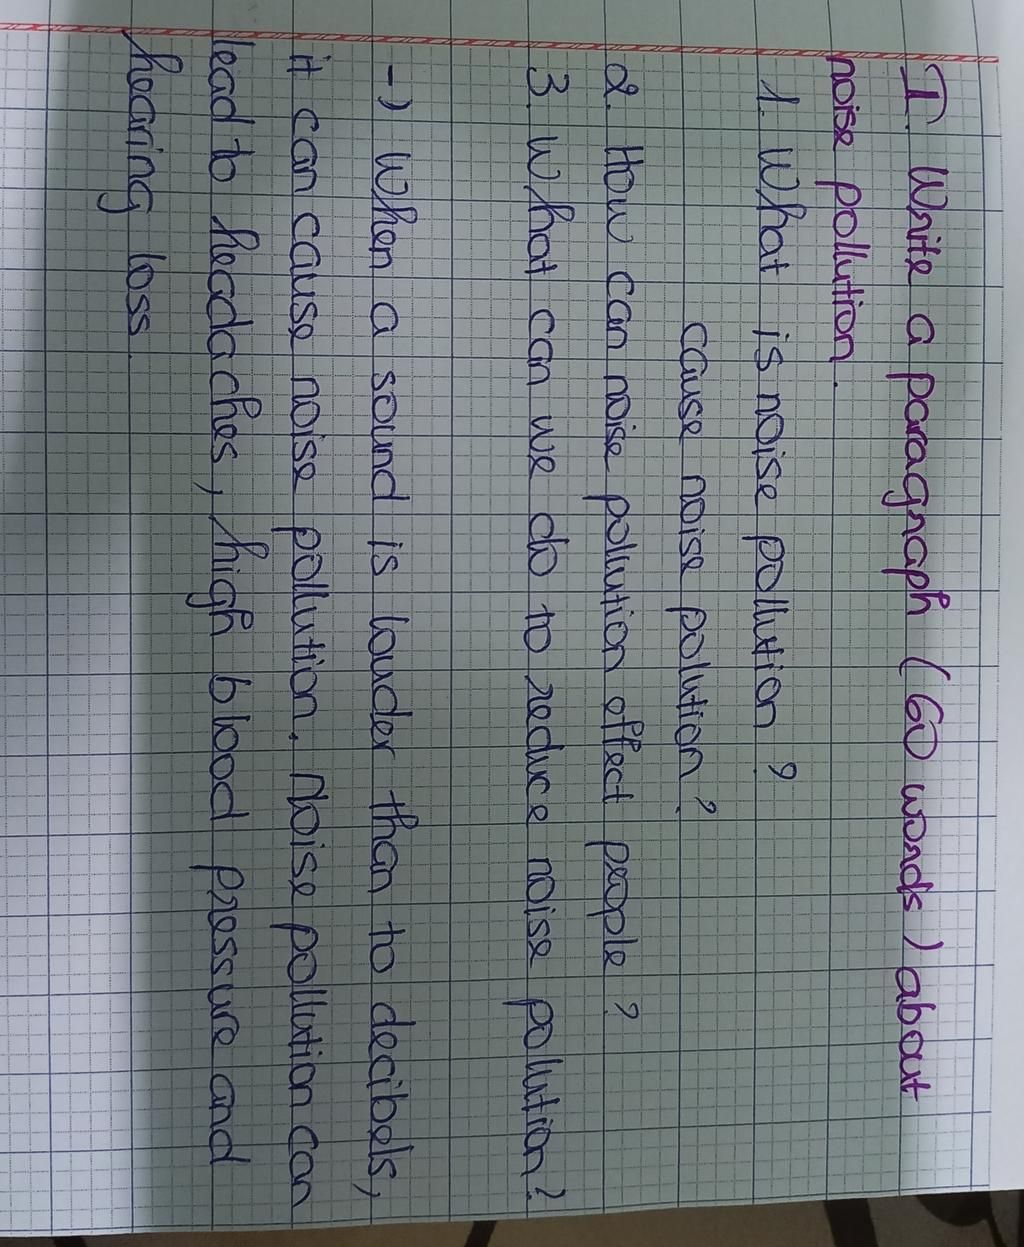 I. Write a paragraph (60 words) about
noise pollution.
1. What is noise pollution?
cause noise polution?
2. How can noise pollution effect people?
3. What can we do to reduce noise pollution?
-) When a sound is louder than to decibels,
it can cause noise pollution. Noise pollution can
lead to headaches, high blood pressure and
hearing loss.